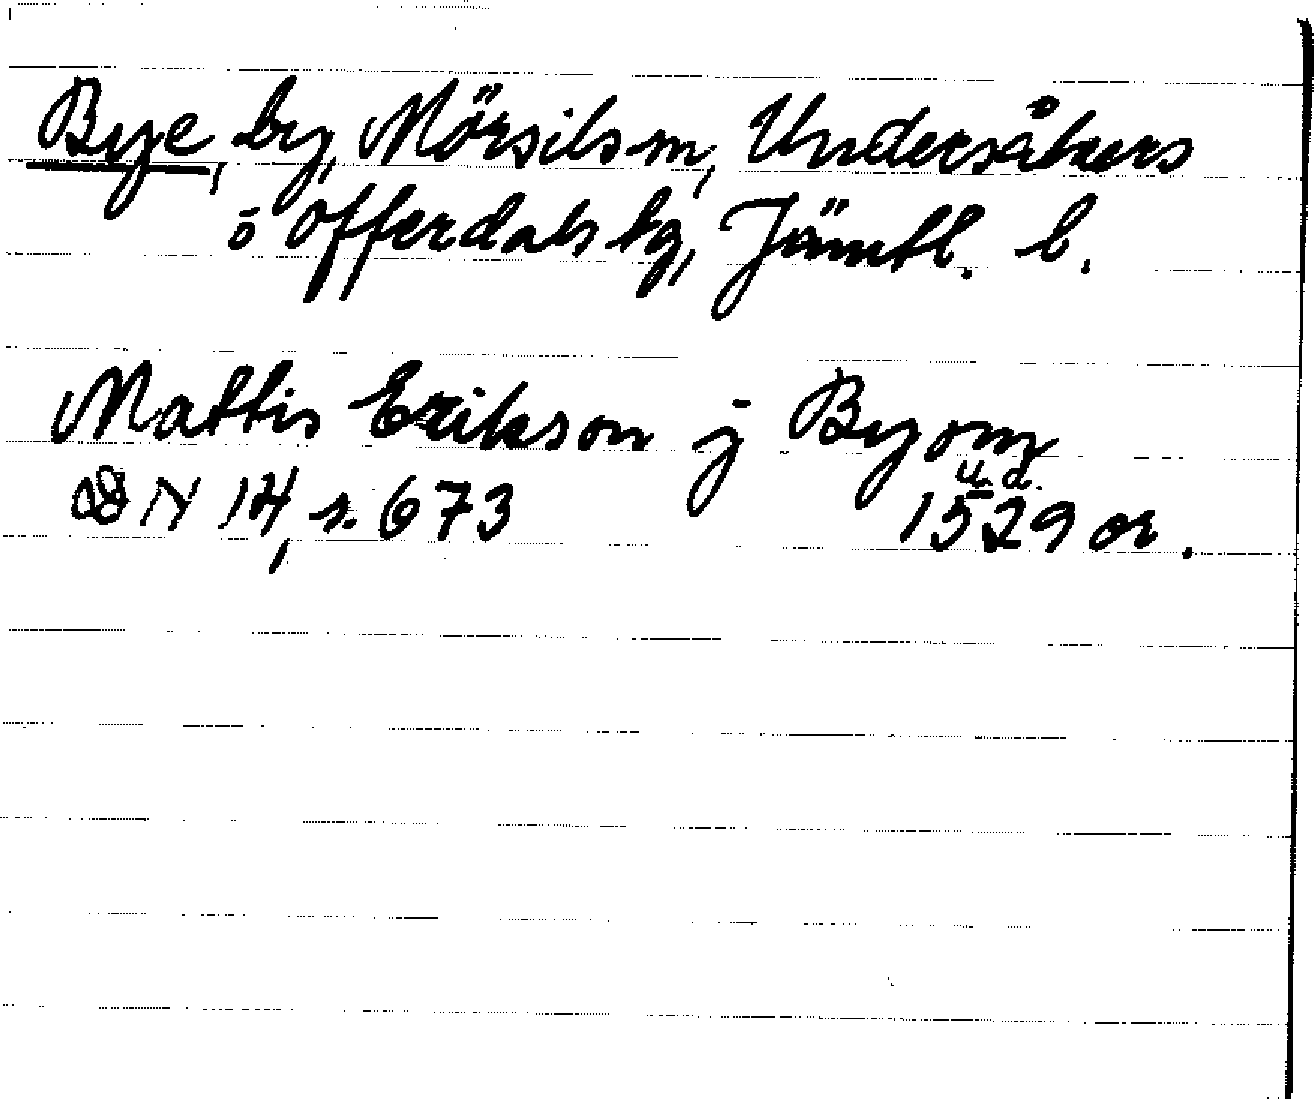 Bye, by, Mörsils sn, Undersåkers
o Offerdals tg, Jämtl. l.
Mattis Erikson j Byom
u.d.
DN 14, s. 673 1529 or.